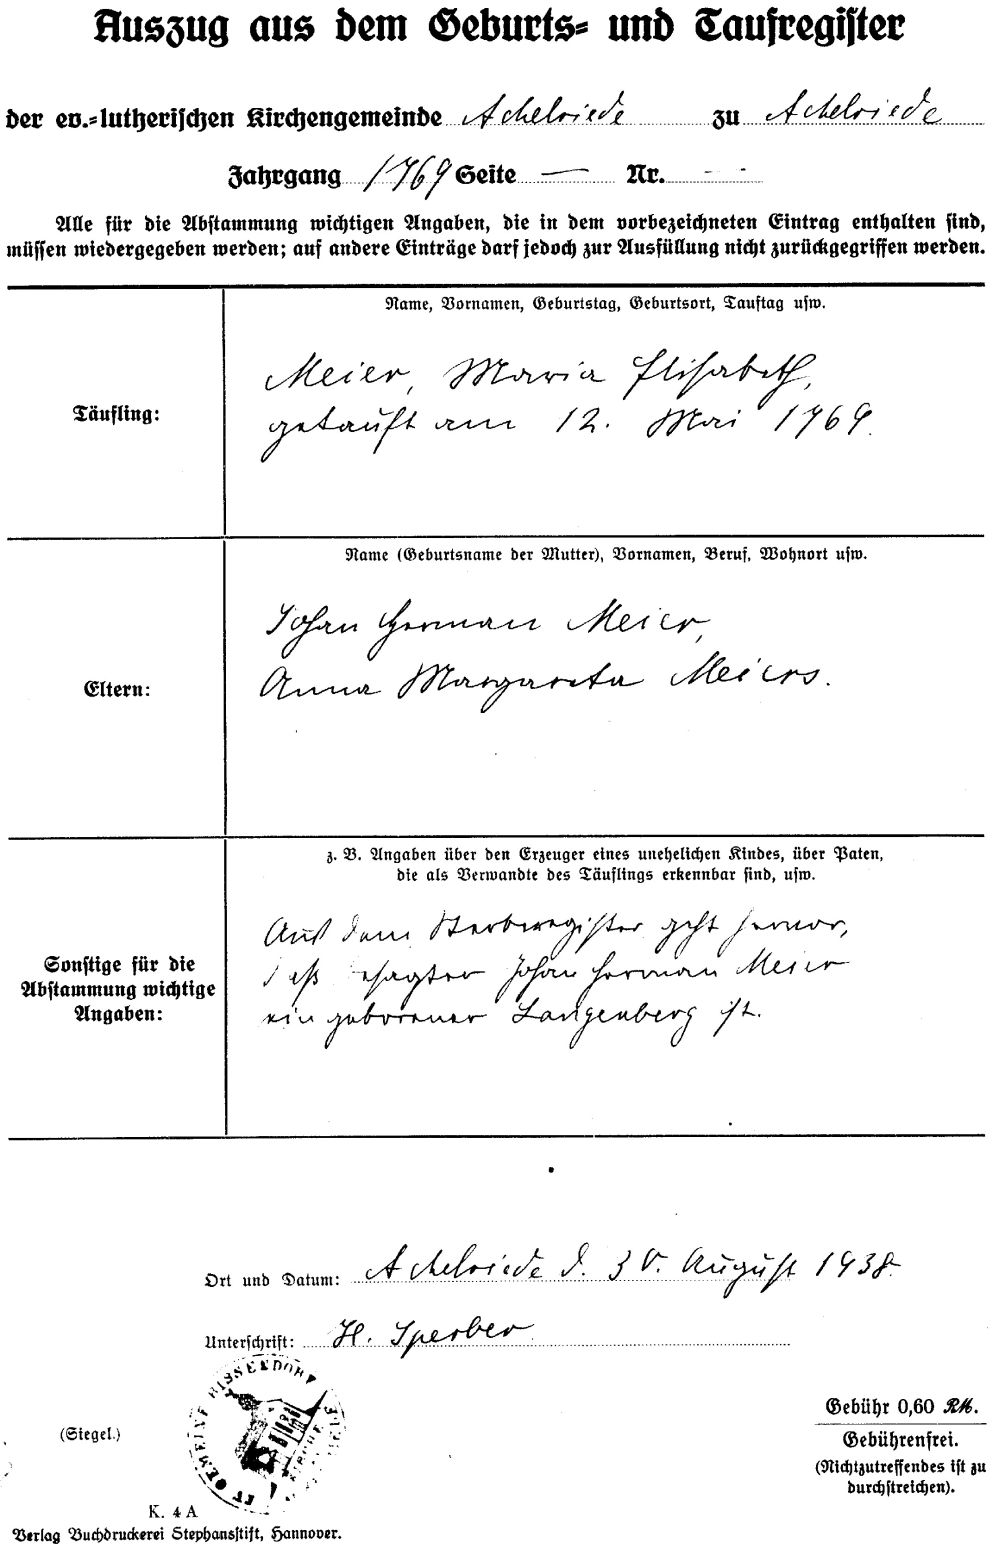 Auszug aus dem Geburts= und Taufregister
der ev.=lutherischen Kirchengemeinde Achelriede zu Achelriede
Jahrgang 1769 Seite — Nr. - -
Alle für die Abstammung wichtigen Angaben, die in dem vorbezeichneten Eintrag enthalten sind,
müssen wiedergegeben werden; auf andere Einträge darf jedoch zur Ausfüllung nicht zurückgegriffen werden.
Name, Vornamen, Geburtstag, Geburtsort, Tauftag usw.
Täufling:
Meier, Maria Elisabeth,
getauft am 12. Mai 1769.
Name (Geburtsname der Mutter), Vornamen, Beruf, Wohnort usw.
Eltern:
Johan Herman Meier,
Anna Margareta Meiers.
z. B. Angaben über den Erzeuger eines unehelichen Kindes, über Paten,
die als Verwandte des Täuflings erkennbar sind, usw.
Sonstige für die
Abstammung wichtige
Angaben:
Aus dem Sterberegister geht hervor,
daß besagter Johan Herman Meier
ein geborener Langenberg ist.
Ort und Datum: Achelriede d. 30. August 1938.
Unterschrift: H. Sperber
(Siegel.)
GEMEINE BISSENDORF
KIRCHE
Gebühr 0,60 RM.
Gebührenfrei.
(Nichtzutreffendes ist zu
durchstreichen).
K. 4 A
Verlag Buchdruckerei Stephansstift, Hannover.